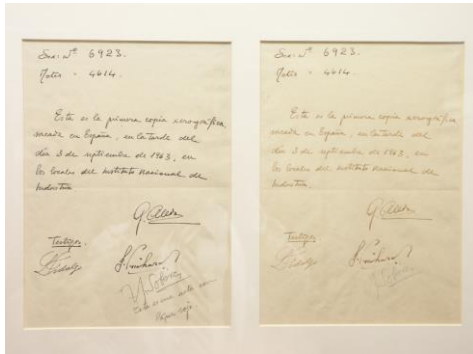 Sne: Nº 6923.
Motor " 4614.
Esta es la primera copia xerográfica
sacada en España, en la tarde del
día 3 de septiembre de 1963, en
los locales del Instituto Nacional de
Industria
Testigos.
Hidalgo
Esta es una nota en
papel rojo.
Sne: Nº 6923.
Motor " 4614.
Esta es la primera copia xerográfica
sacada en España, en la tarde del
día 3 de septiembre de 1963, en
los locales del Instituto Nacional de
Industria
Testigos.
Hidalgo